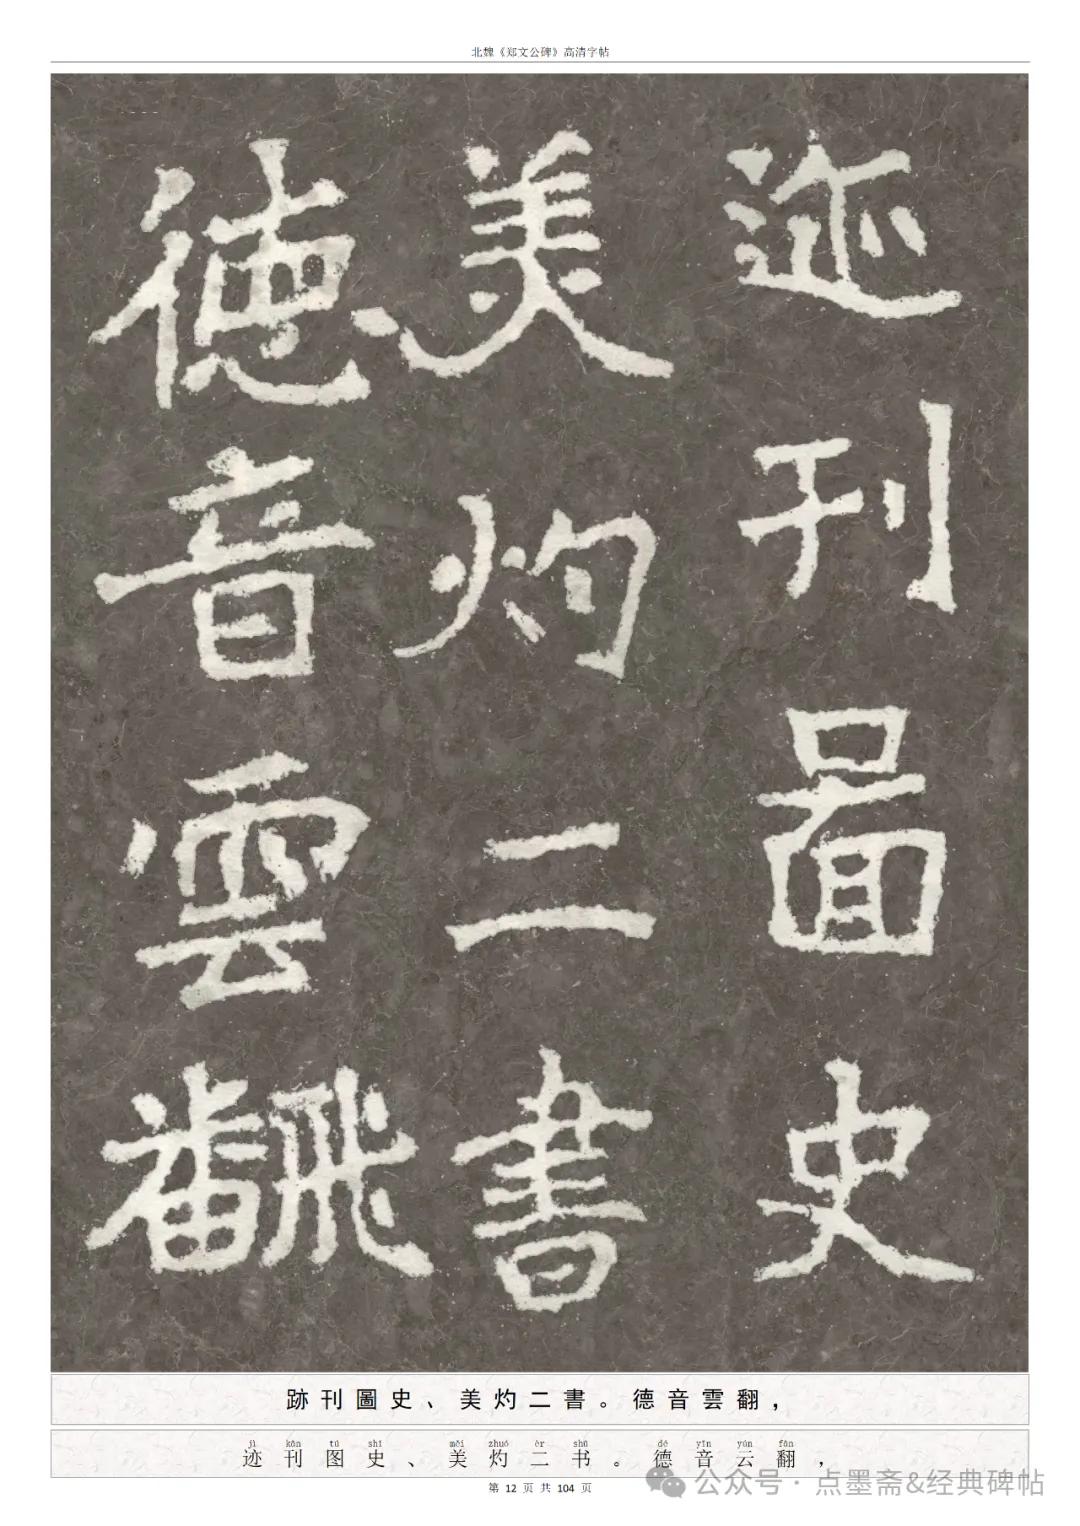 北魏《郑文公碑》高清字帖
迹刊圖史
美灼二書
德音雲飜
跡刊圖史、美灼二書。德音雲翻，
jì kān tú shǐ měi zhuó èr shū dé yīn yún fān
迹刊图史、美灼二书。德音云翻，
第 12 页 共 104 页
公众号 · 点墨斋&经典碑帖